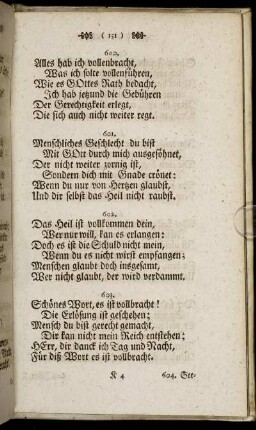 ( 151 )
600.
Alles hab ich vollenbracht,
Was ich solte vollenführen,
Wie es GOttes Rath bedacht,
Ich hab jetzund die Gebühren
Der Gerechtigkeit erlegt,
Die sich auch nicht weiter regt.
601.
Menschliches Geschlecht du bist
Mit GOtt durch mich ausgesöhnet,
Der nicht weiter zornig ist,
Sondern dich mit Gnade crönet:
Wenn du nur von Hertzen glaubst,
Und dir selbst das Heil nicht raubst.
602.
Das Heil ist vollkommen dein,
Wer nur will, kan es erlangen:
Doch es ist die Schuld nicht mein,
Wenn du es nicht wirst empfangen;
Menschen glaubt doch insgesamt,
Wer nicht glaubt, der wird verdammt.
603.
Schönes Wort, es ist vollbracht!
Die Erlösung ist geschehen;
Mensch du bist gerecht gemacht,
Dir kan nicht mein Reich entstehen;
HErr, dir danck ich Tag und Nacht,
Für diß Wort es ist vollbracht.
K 4 604. Ste-